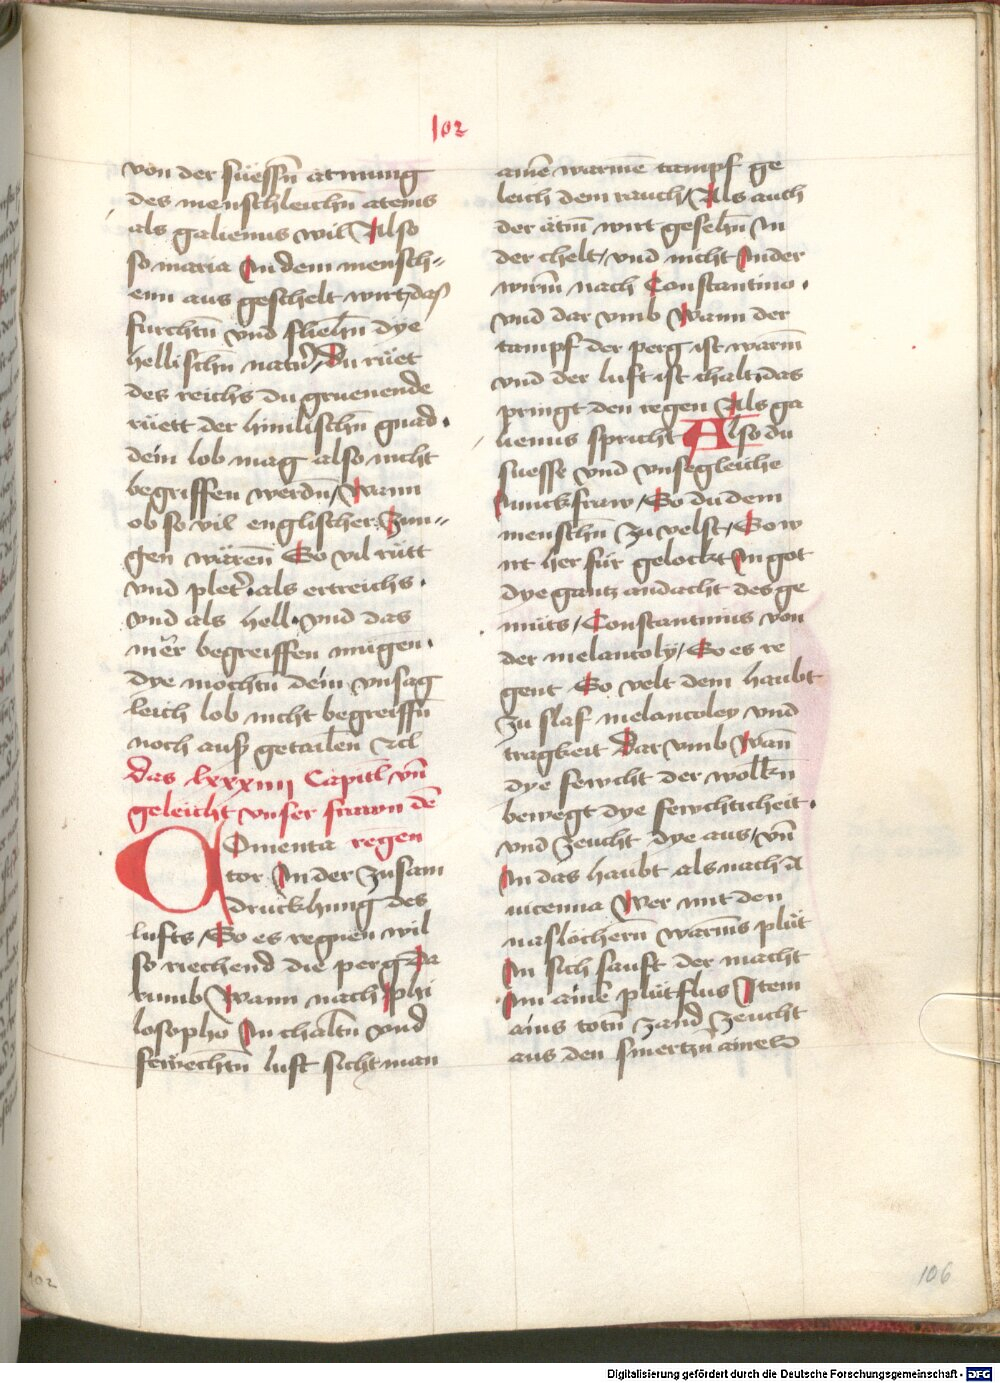 102
von der süessn̄ atmung
des menschleichn̄ atems
als galienus wil Also
so maria In dem mensch=
enn aus geschelt wirt das
furchtn̄ vnd fliehn̄ dye
hellischn̄ natn̄ Du rüet
des reichs du gruenende
rüett der himlischn̄ gnad.
dein lob mag also nicht
begriffen werdn̄ / Wann
ob so vil englischer Zun=
gen wären̄ So vil rütt
vnd pleter als ertreichs.
vnd als hell. vnd das
mer begreiffen mügen.
dye mochtn̄ dein vnsag
leich lob nicht begreiffn̄
noch ausz getailen ꝛcl
das lxxxiiii Capitl vn̄
geleicht vnser frawn de
Omenta regen
tor In der Zusam
druckhung des
lufts / So es regnen wil
so riechend die perg Da
rumb Wann nach phi
losopho In chaltn̄ vnd
fewechtn̄ luft sicht man
ainē warmē tampf ge
leich dem rauch / Als auch
der ätm̄ wirt gesehn̄ In
der chelt / vnd nicht In der
wirm̄ nach Constantino.
vnd dar vmb Wann der
tampf der perg ist warm̄
vnd der luft ist chalt das
pringt den regen Als ga
lienus spricht Also du
suesse vnd vnsegleiche
Junckfraw / So du dem
menschn̄ Zu velst / So w
irt her für gelockt In got
dye gantz andacht des ge
müts / Constantinus von
der melancoly / So es re
gent So velt dem haubt
Zu slaf melancoley vnd
tragkeit Dar vmb Wan̄
dye fewcht der wolkn̄
bewegt dye fewchticheit.
vnd Zeucht dye aus / vn̄
In das haubt als nach A
uicenna Wer mit den
naslöchern̄ warms plüt
In sich sauft der macht
Im ainē plütflus Item
ains totn̄ Zand Zeucht
aus den smertzn̄
102
106
Digitalisierung gefördert durch die Deutsche Forschungsgemeinschaft - DFG